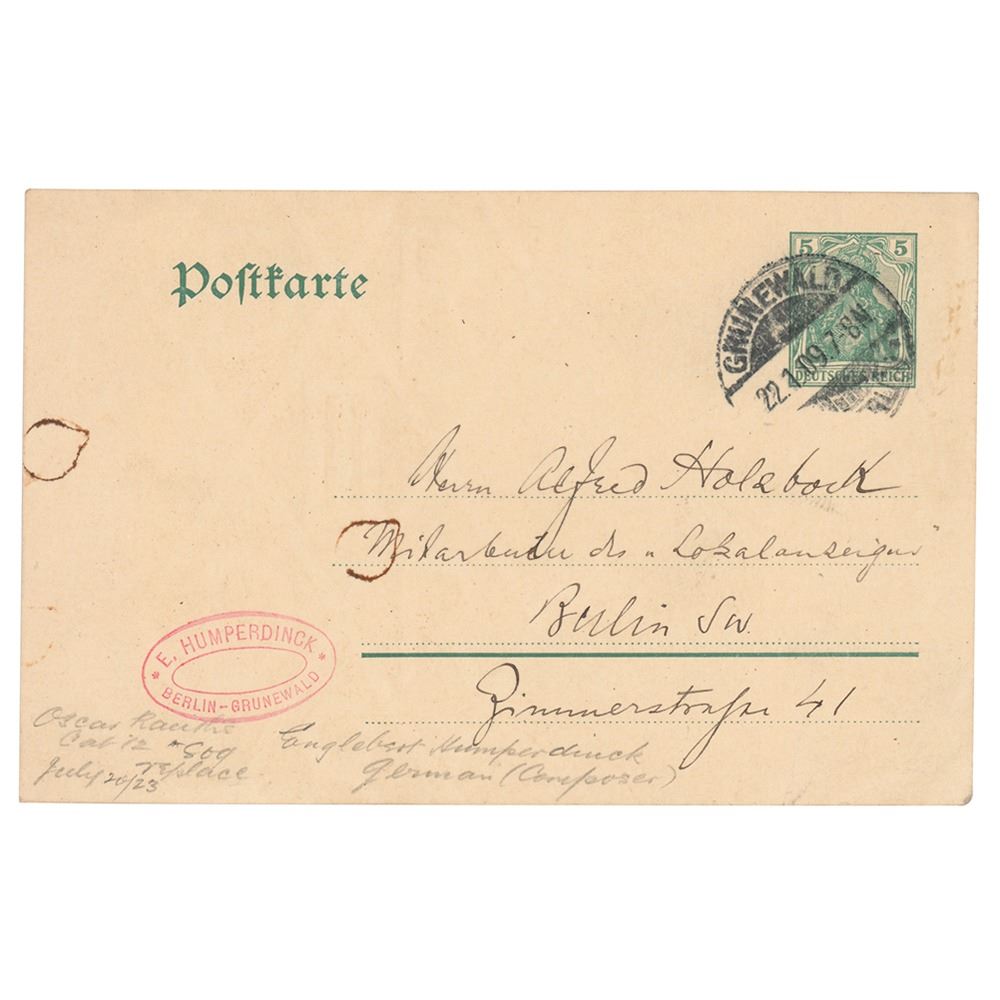 Postkarte
5 5
DEUTSCHES REICH
GRUNEWALD
22.1.09.7-8N
Herrn Alfred Holzbock
Mitarbeiter des „Lokalanzeiger"
Berlin SW.
Zimmerstraße 41
* E. HUMPERDINCK *
BERLIN-GRUNEWALD
Oscar
Cat 12
July 20/23 replace
Englebert Humperdinck
German (Composer)